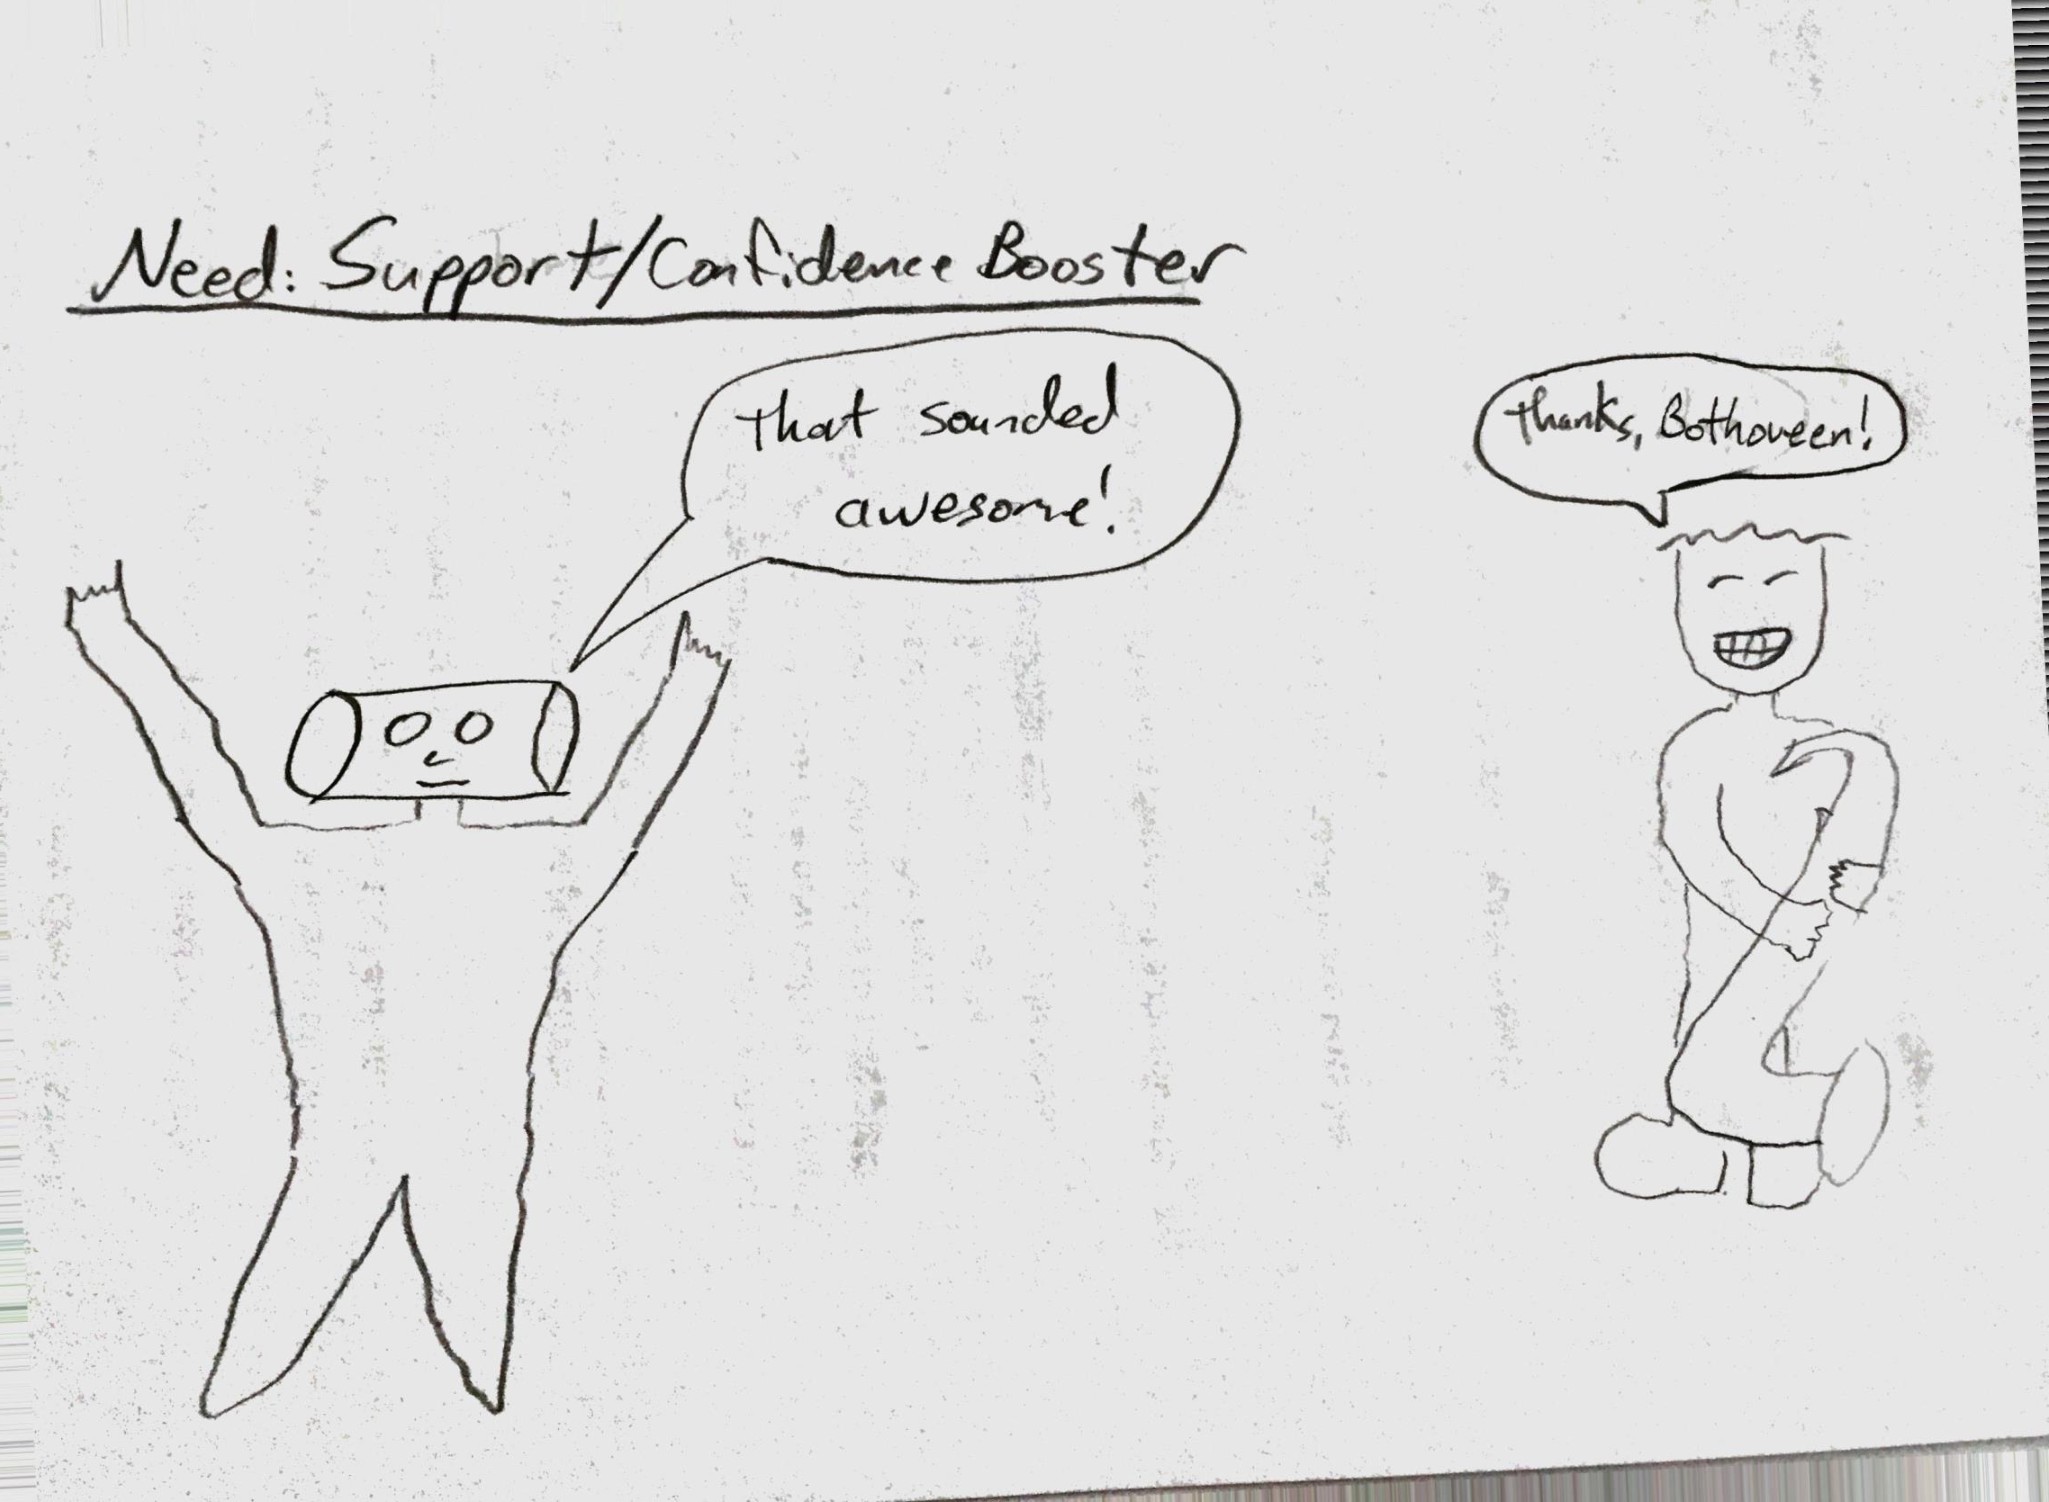 Need: Support/Confidence Booster
That sounded
awesome!
Thanks, Bothoveen!